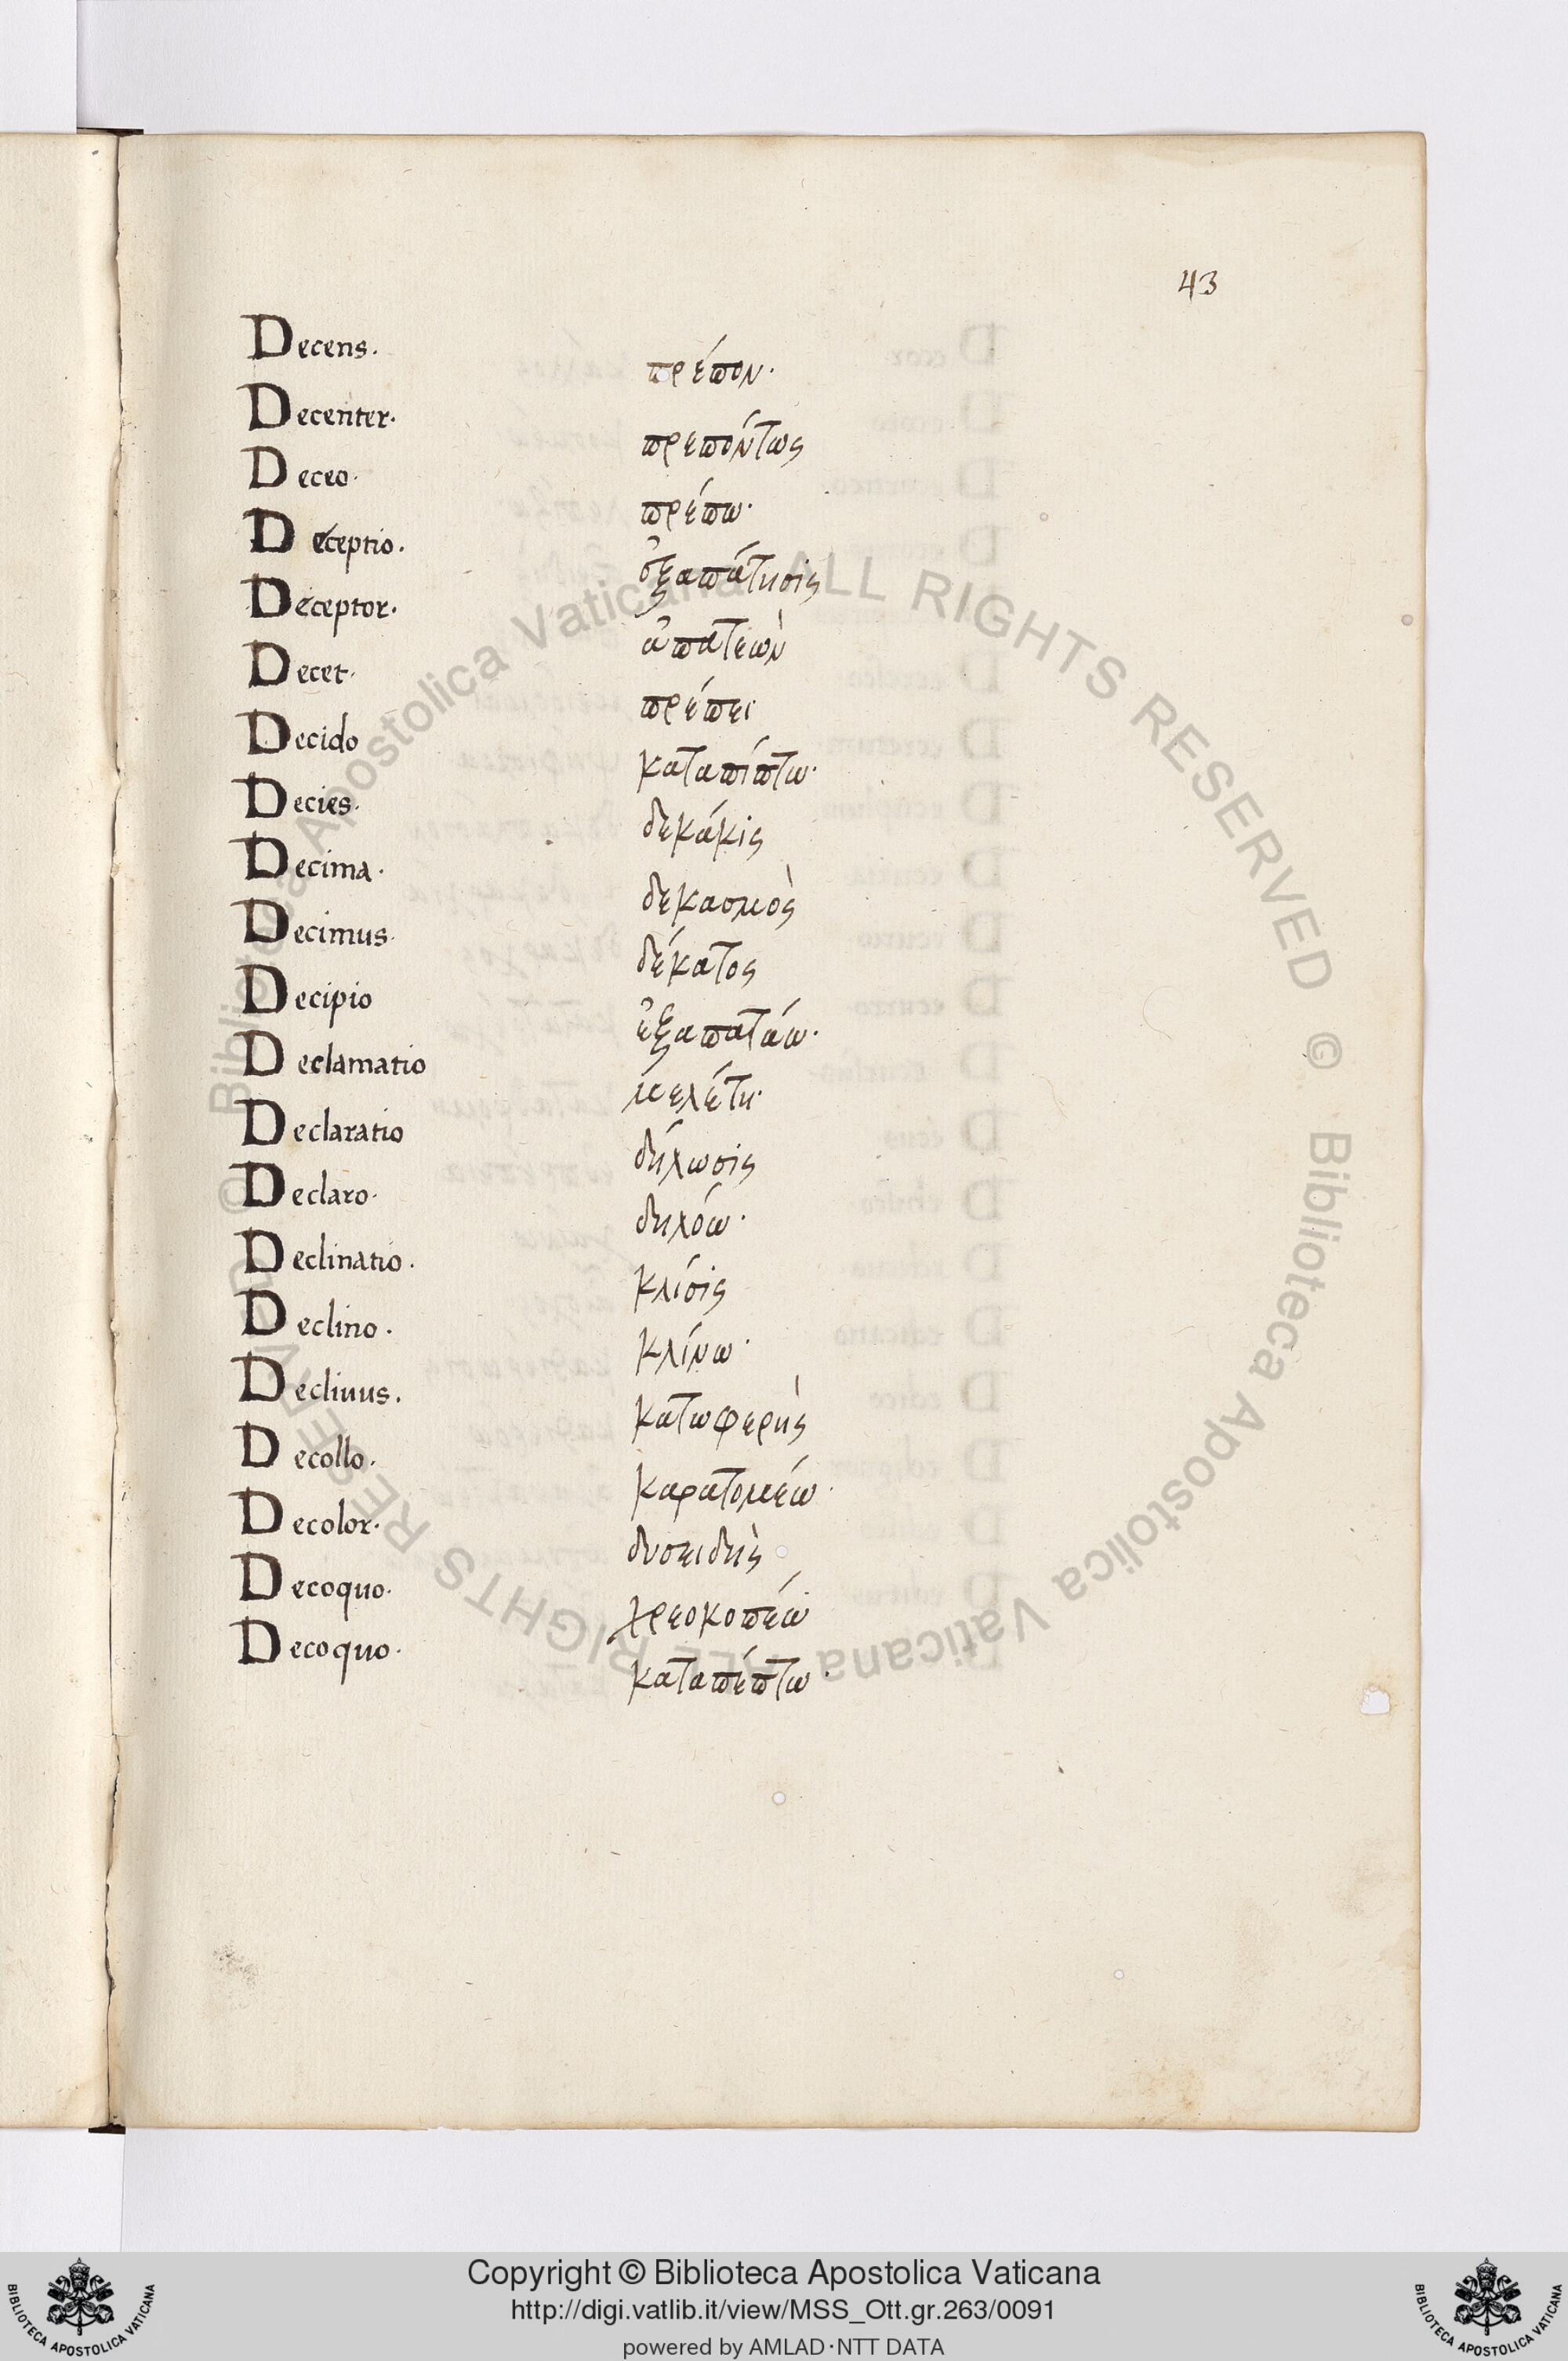 43
Decens. πρέπον.
Decenter. πρεπόντως
Deceo. πρέπω.
Deceptio. ἐξαπάτησις
Deceptor. ἀπατεὼν
Decet. πρέπει
Decido καταπίπτω.
Decies. δεκάκις
Decima. δεκασμὸς
Decimus. δέκατος
Decipio ἐξαπατάω.
Declamatio μελέτη.
Declaratio δήλωσις
Declaro. δηλόω.
Declinatio. κλίσις
Declino. κλίνω.
Decliuus. κατωφερὴς
Decollo. καρατομέω.
Decolor. δυσειδὴς
Decoquo. χρεοκοπέω
Decoquo. καταπέπτω.
Copyright © Biblioteca Apostolica Vaticana
http://digi.vatlib.it/view/MSS_Ott.gr.263/0091
powered by AMLAD·NTT DATA
BIBLIOTECA APOSTOLICA VATICANA
BIBLIOTECA APOSTOLICA VATICANA
© Biblioteca Apostolica Vaticana ALL RIGHTS RESERVED © Biblioteca Apostolica Vaticana ALL RIGHTS RESERVED